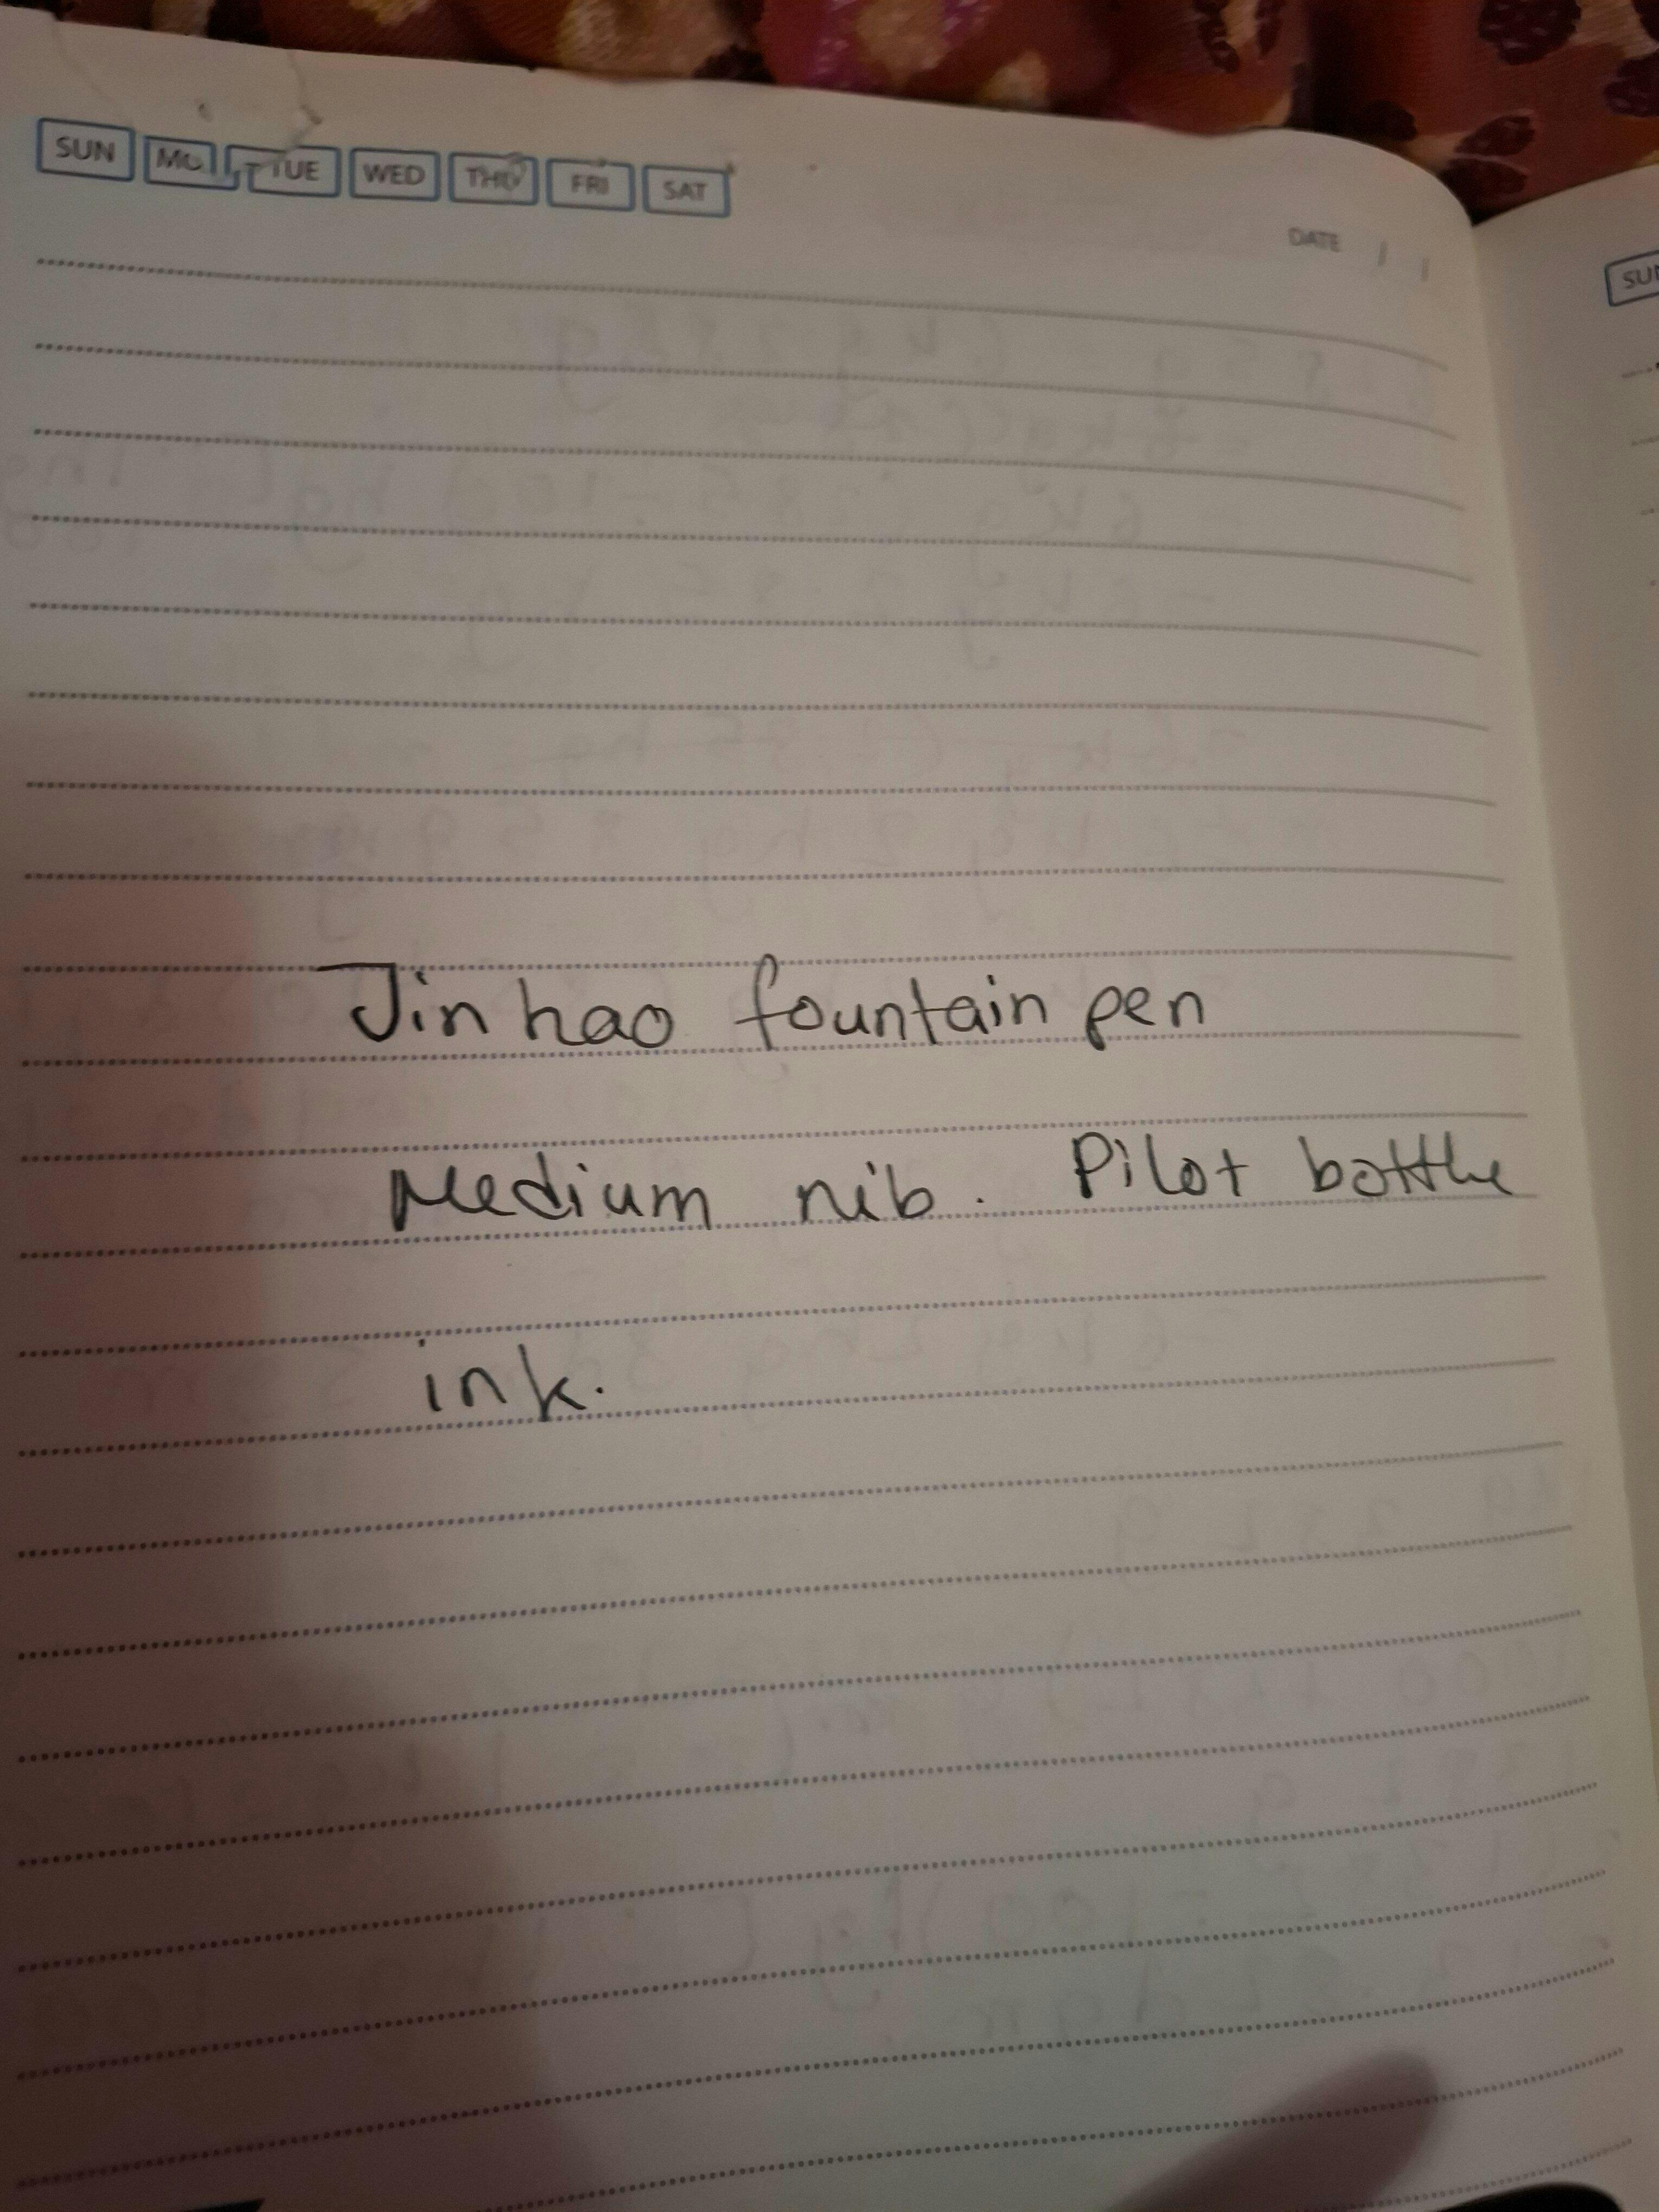 SUN MON TUE WED THU FRI SAT
DATE / /
SUN
Jinhao fountain pen
Medium nib. Pilot bottle
ink.